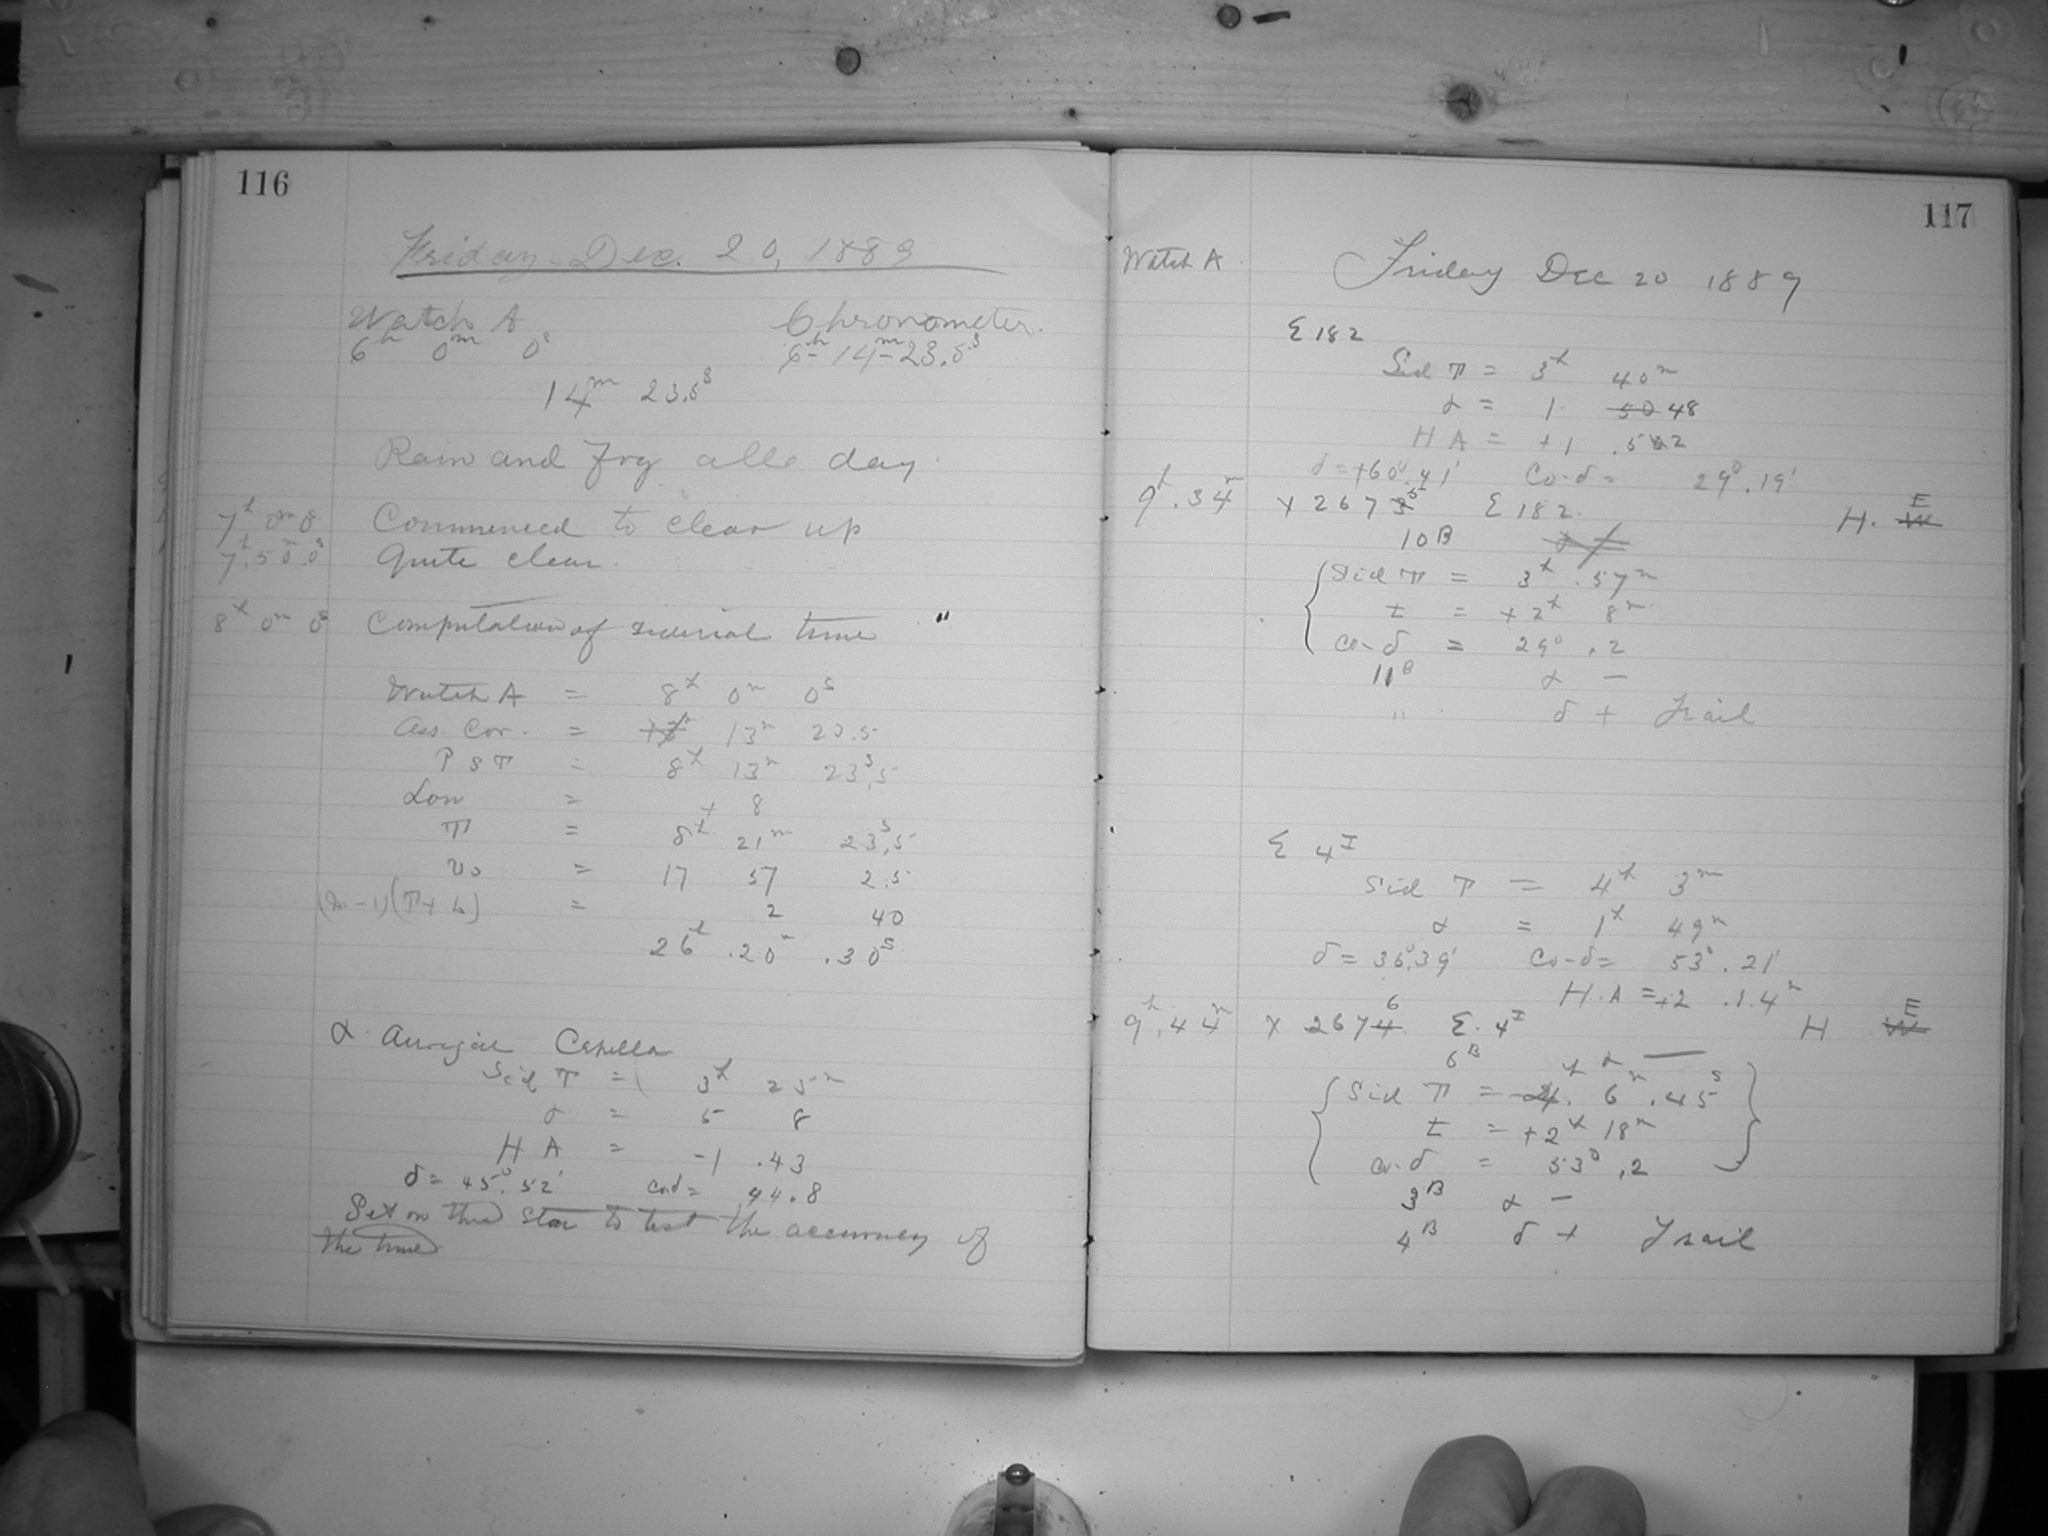 116
Friday Dec. 20, 1889
Watch A Chronometer.
6h 0m 0s 6h-14m-23.5s
14m 23.5s
Rain and Fog all day
7h 0m 0 Commenced to clear up
7h.50m.0s Quite clear.
8h 0m 0s Computation of sidereal time "
Watch A = 8h 0m 0s
Ass. Cor. = 13m 23.5
P S T = 8h 13m 23s.5
Lon = + 8
T = 8h 21m 23s.5
vo = 17 57 2.5
(m-1)(T+L) = 2 40
26h.20m.30s
α Aurigae Capella
Sid T = 3h 25m
α = 5 8
H A = -1 .43
δ = 45°.52' co-δ = 44.8
Set on this star to test the accuracy of
the time
117
Watch A Friday Dec 20 1889
Σ 182
Sid T = 3h 40m
α = 1. 50 48
H A = +1 .52
δ = +60°.41' Co-δ = 29°.19'
9h.34m × 2675 Σ 182. H. E W
10B
Sid T = 3h.57m
t = +2h 8m
co-δ = 29°.2
11B α -
" δ + Trail
Σ 4I
Sid T = 4h 3m
α = 1h 49m
δ = 36°.39' Co-δ = 53°.21'
H.A = +2 .14m
9h.44m × 2674 6 Σ. 4I H E W
6B α —
Sid T = 4h. 6m.45s
t = +2h 18m
co-δ = 53°.2
3B α -
4B δ + Trail